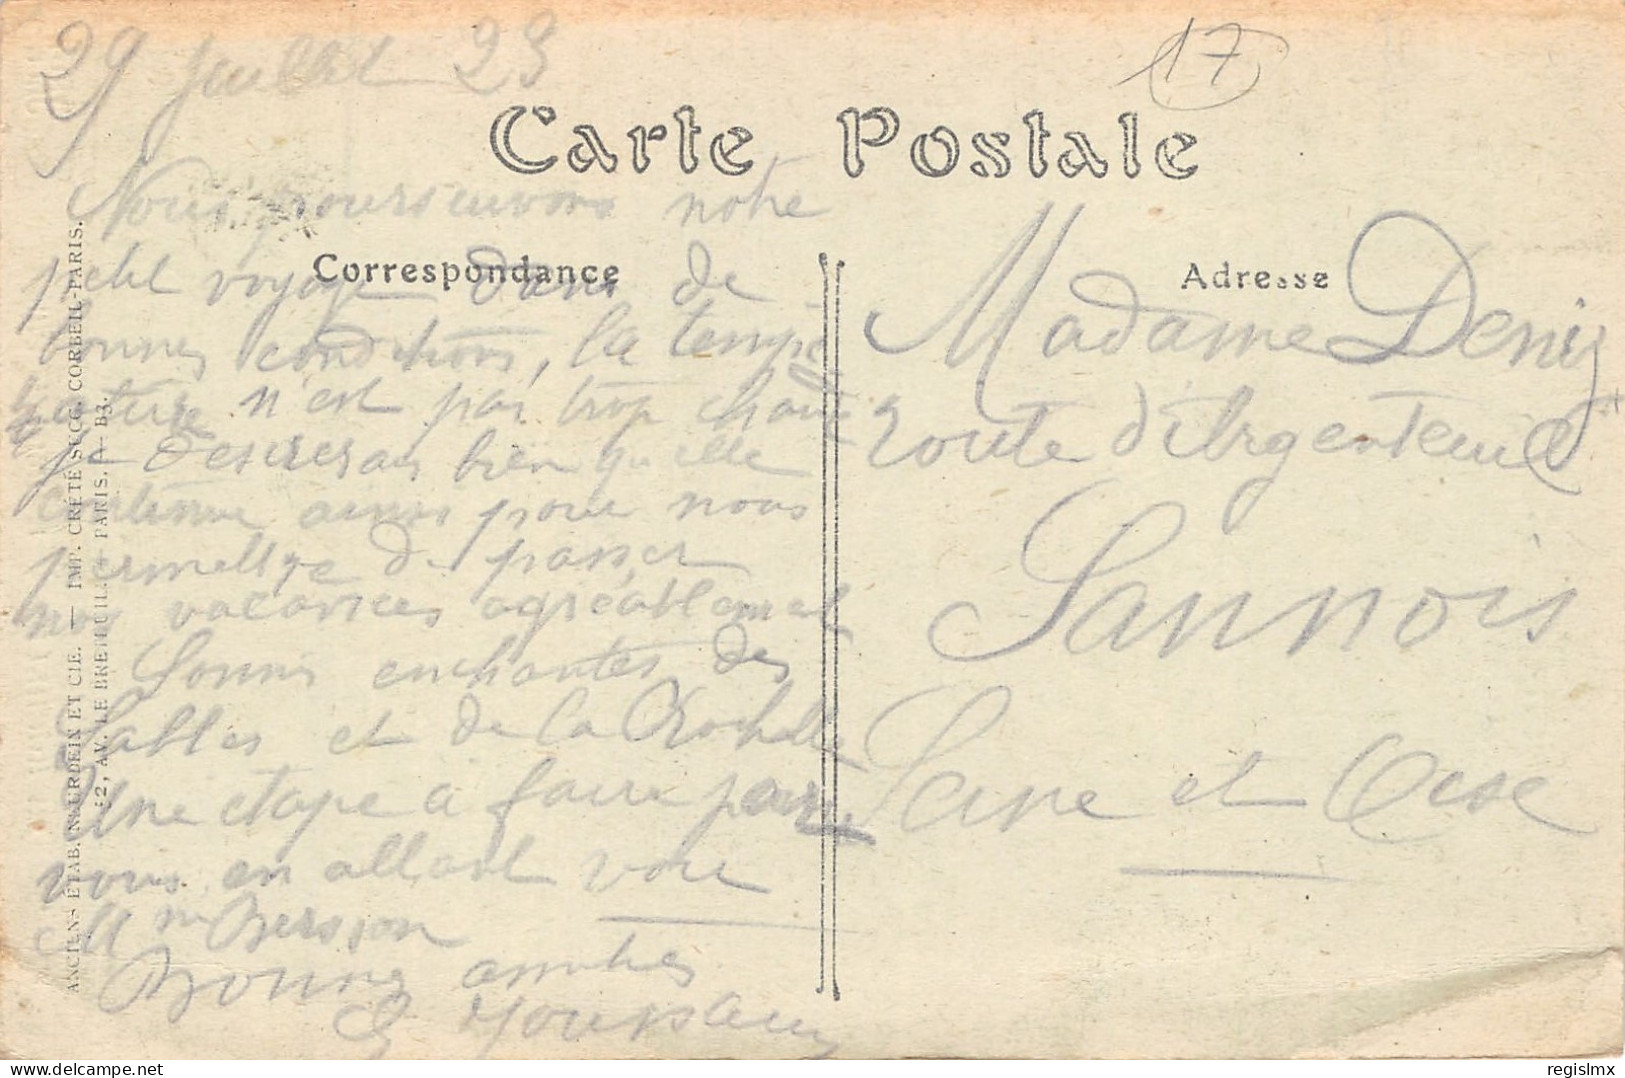 29 Juillet 23
17
Carte Postale
Correspondance
Adresse
Nous poursuivons notre
petit voyage dans de
bonnes conditions, la tempé
rature n'est pas trop chaude
je désirerais bien qu'elle
continue ainsi pour nous
permettre de passer
nos vacances agréablement
Sommes enchantés des
Sables et de la Rochelle
Une étape à faire pour
vous en allant voir
Mme Bersion
Bonnes amitiés
Madame Denis
route d'Argenteuil
Sannois
Seine et Oise
ANCIENS ETAB. NEURDEIN ET CIE. — IMP. CRÉTÉ SUCC. CORBEIL-PARIS.
52, AV. DE BRETEUIL. — PARIS. — B3.
delcampe.net
regislmx